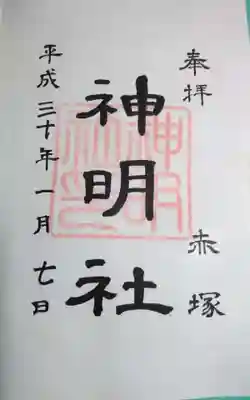 奉拝
赤塚
神明社
平成三十年一月七日